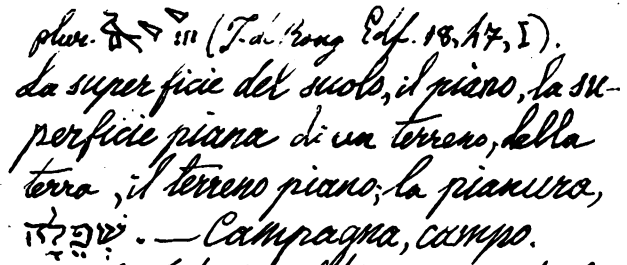 plur. (J. de Roug Edf. 18, 47, I).
La superficie del suolo, il piano, la su-
perficie piana di un terreno, della
terra, il terreno piano; la pianura,
שְׁפֵלָה. — Campagna, campo.